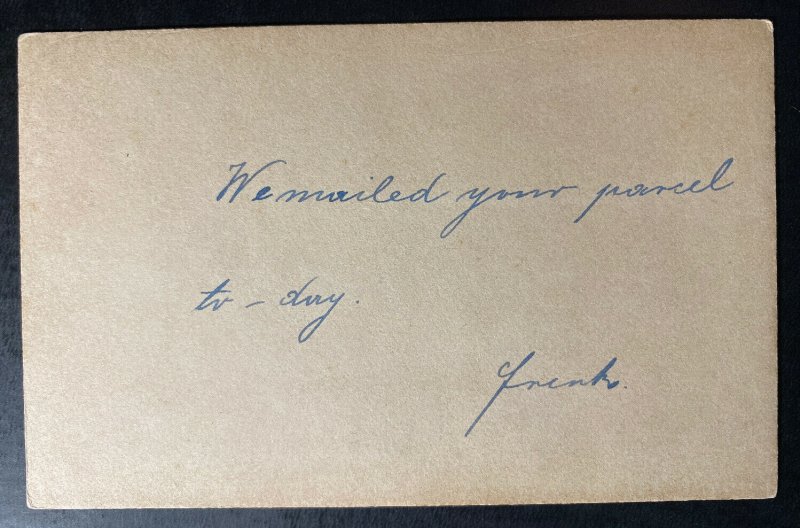 We mailed your parcel
to-day.
Frank.